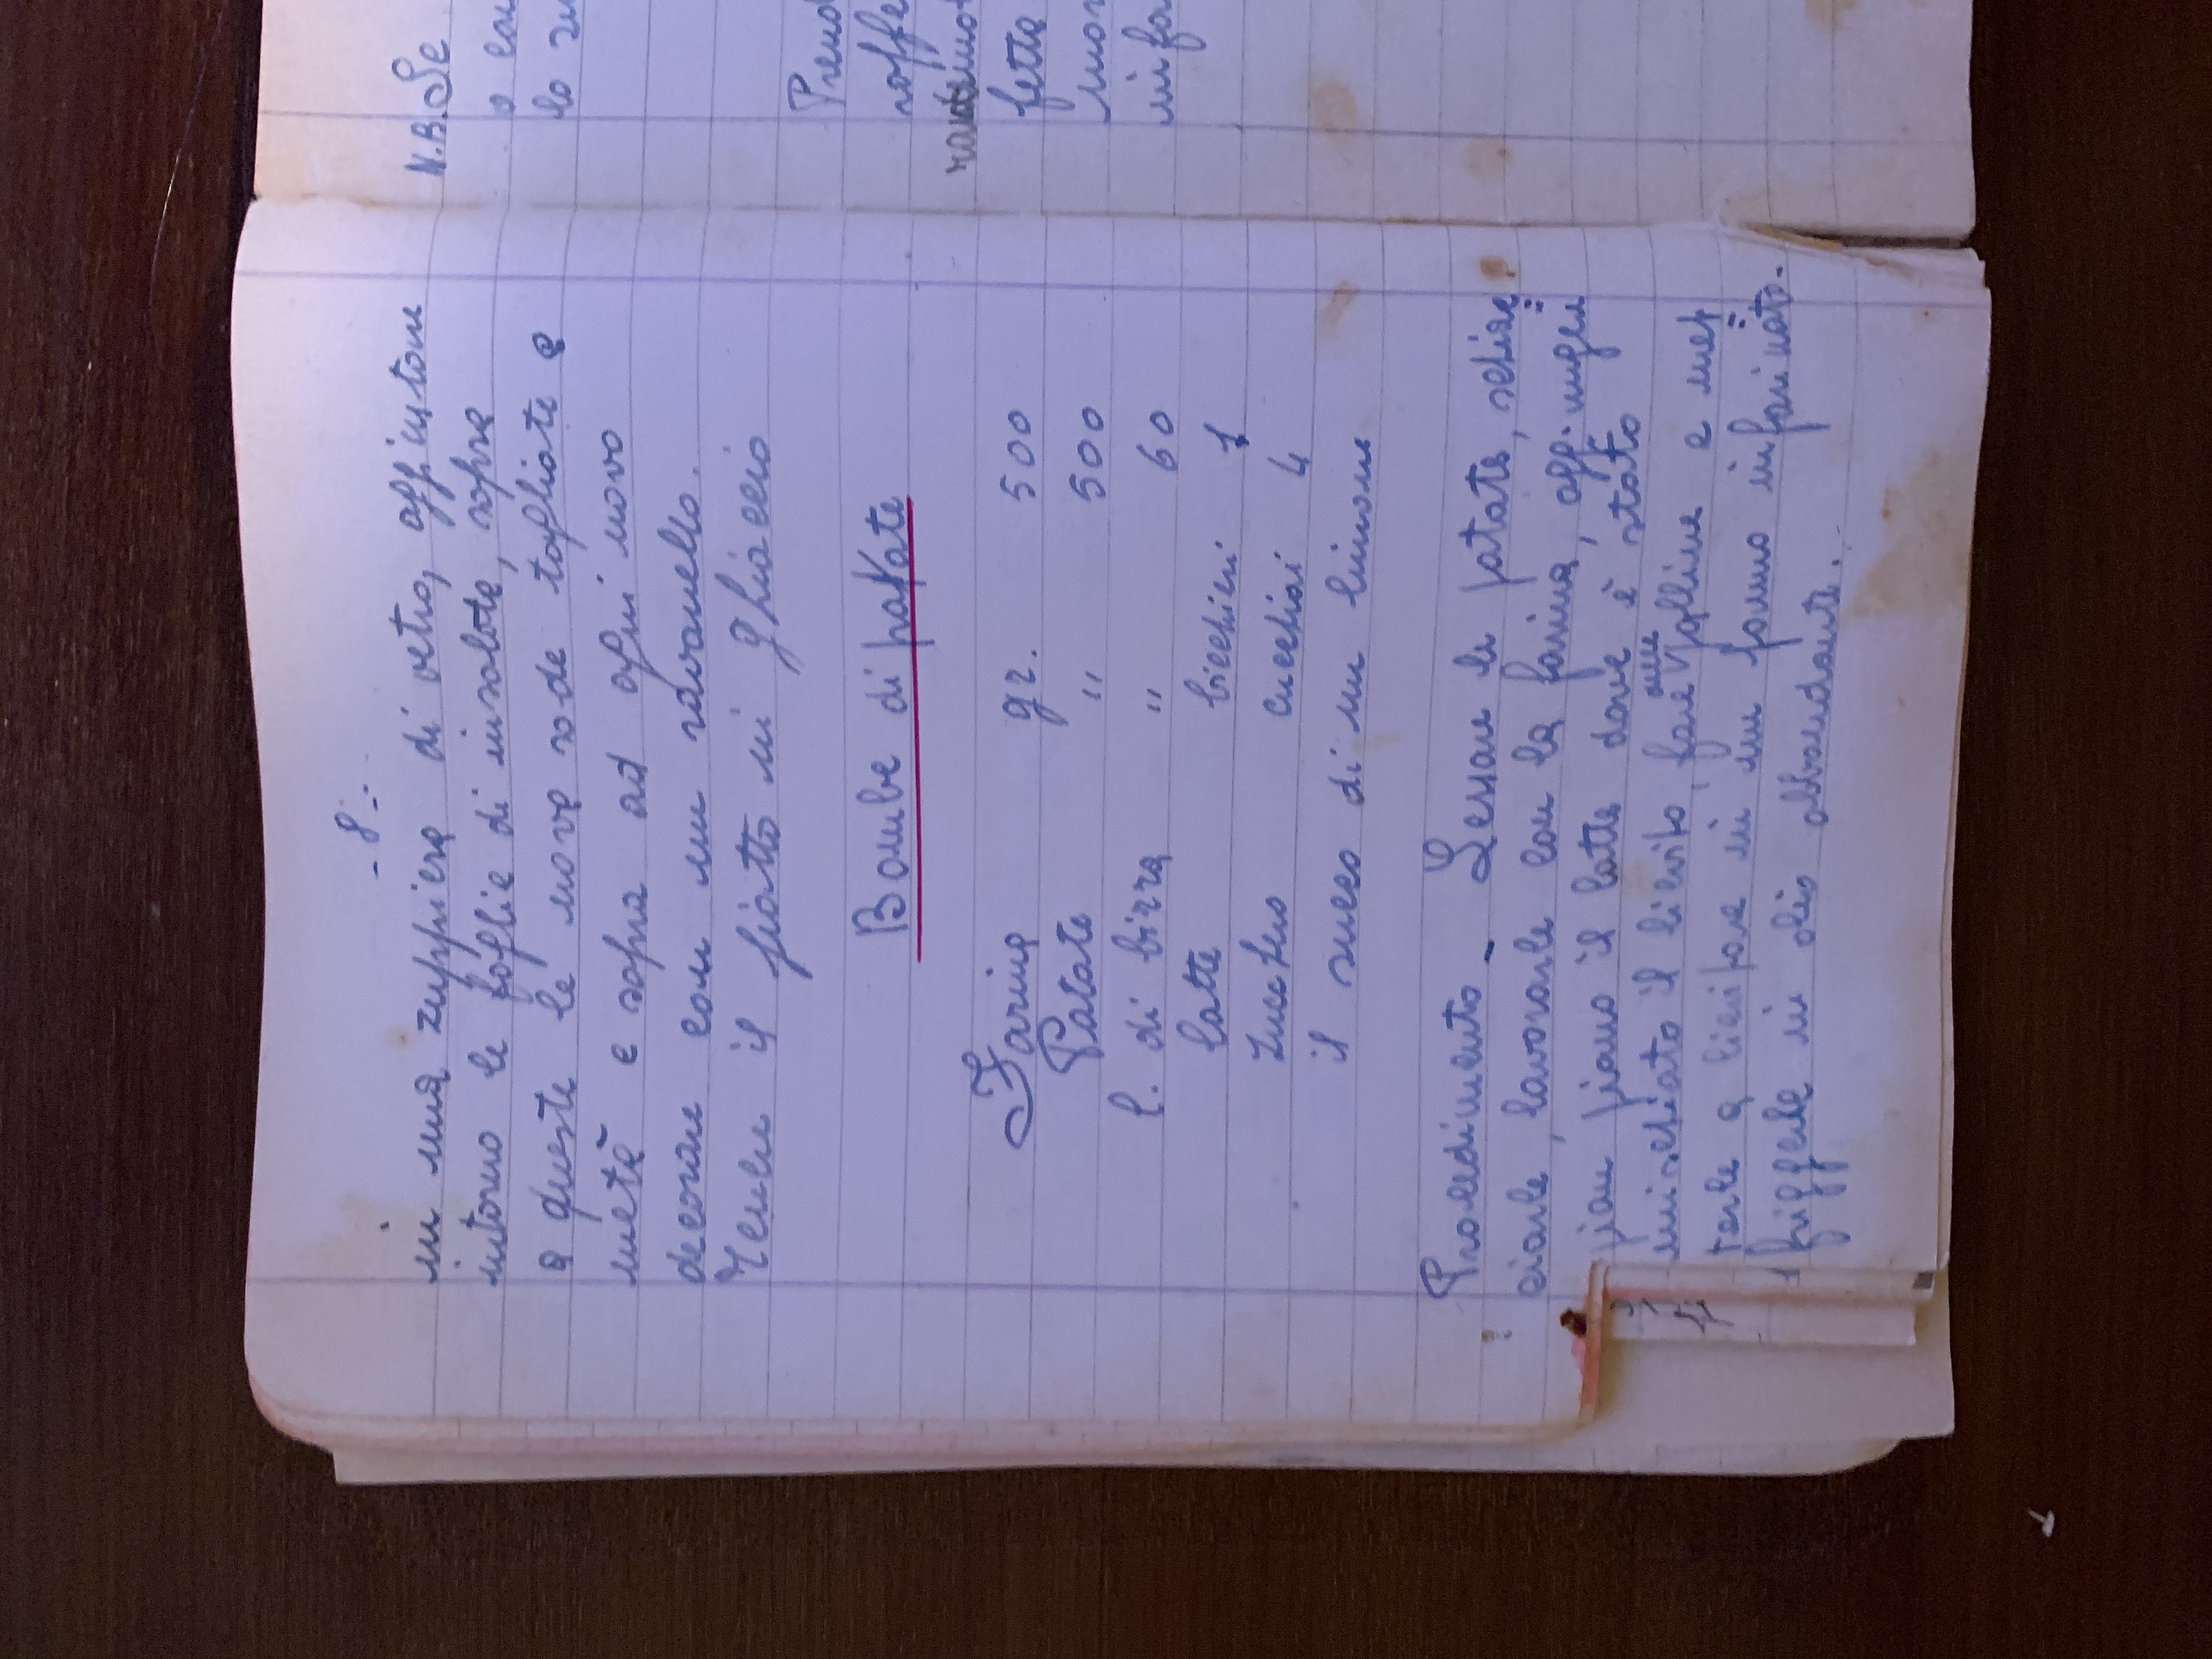 - 8 -
in una zuppiera di vetro, aggiustare
intorno le foglie di insalata, sopra
a queste le uova sode tagliate a
metà e sopra ad ogni uovo
decorare con un ravanello.
Tenere il piatto in ghiaccio
Bombe di patate
Farina gr. 500
Patate " 500
l. di birra " 60
latte bicchieri 1
Zucchero cucchiai 4
il succo di un limone
Procedimento - Lessare le patate, setiac=
ciarle, lavorarle con la farina, aggiunger
pian piano il latte dove è stato
mischiato il lievito, fare palline e met=
terle a lievitare in un panno infarinato.
friggerle in olio abbondante.
N.B. Se
o con
lo
Prend
fetta